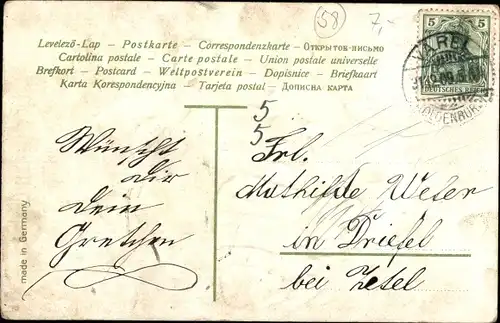 58
7,-
5 5
DEUTSCHES REICH
VAREL
OLDENBURG
Levelező-Lap — Postkarte — Correspondenzkarte — Открытое письмо
Cartolina postale — Carte postale — Union postale universelle
Brefkort — Postcard — Weltpostverein — Dopisnice — Briefkaart
Karta Korespondencyjna — Tarjeta postal — Дописна карта
5
5
Wünscht
Dir
Dein
Gretchen
Frl.
Mathilde Weter
in Driefel
bei Zetel
made in Germany